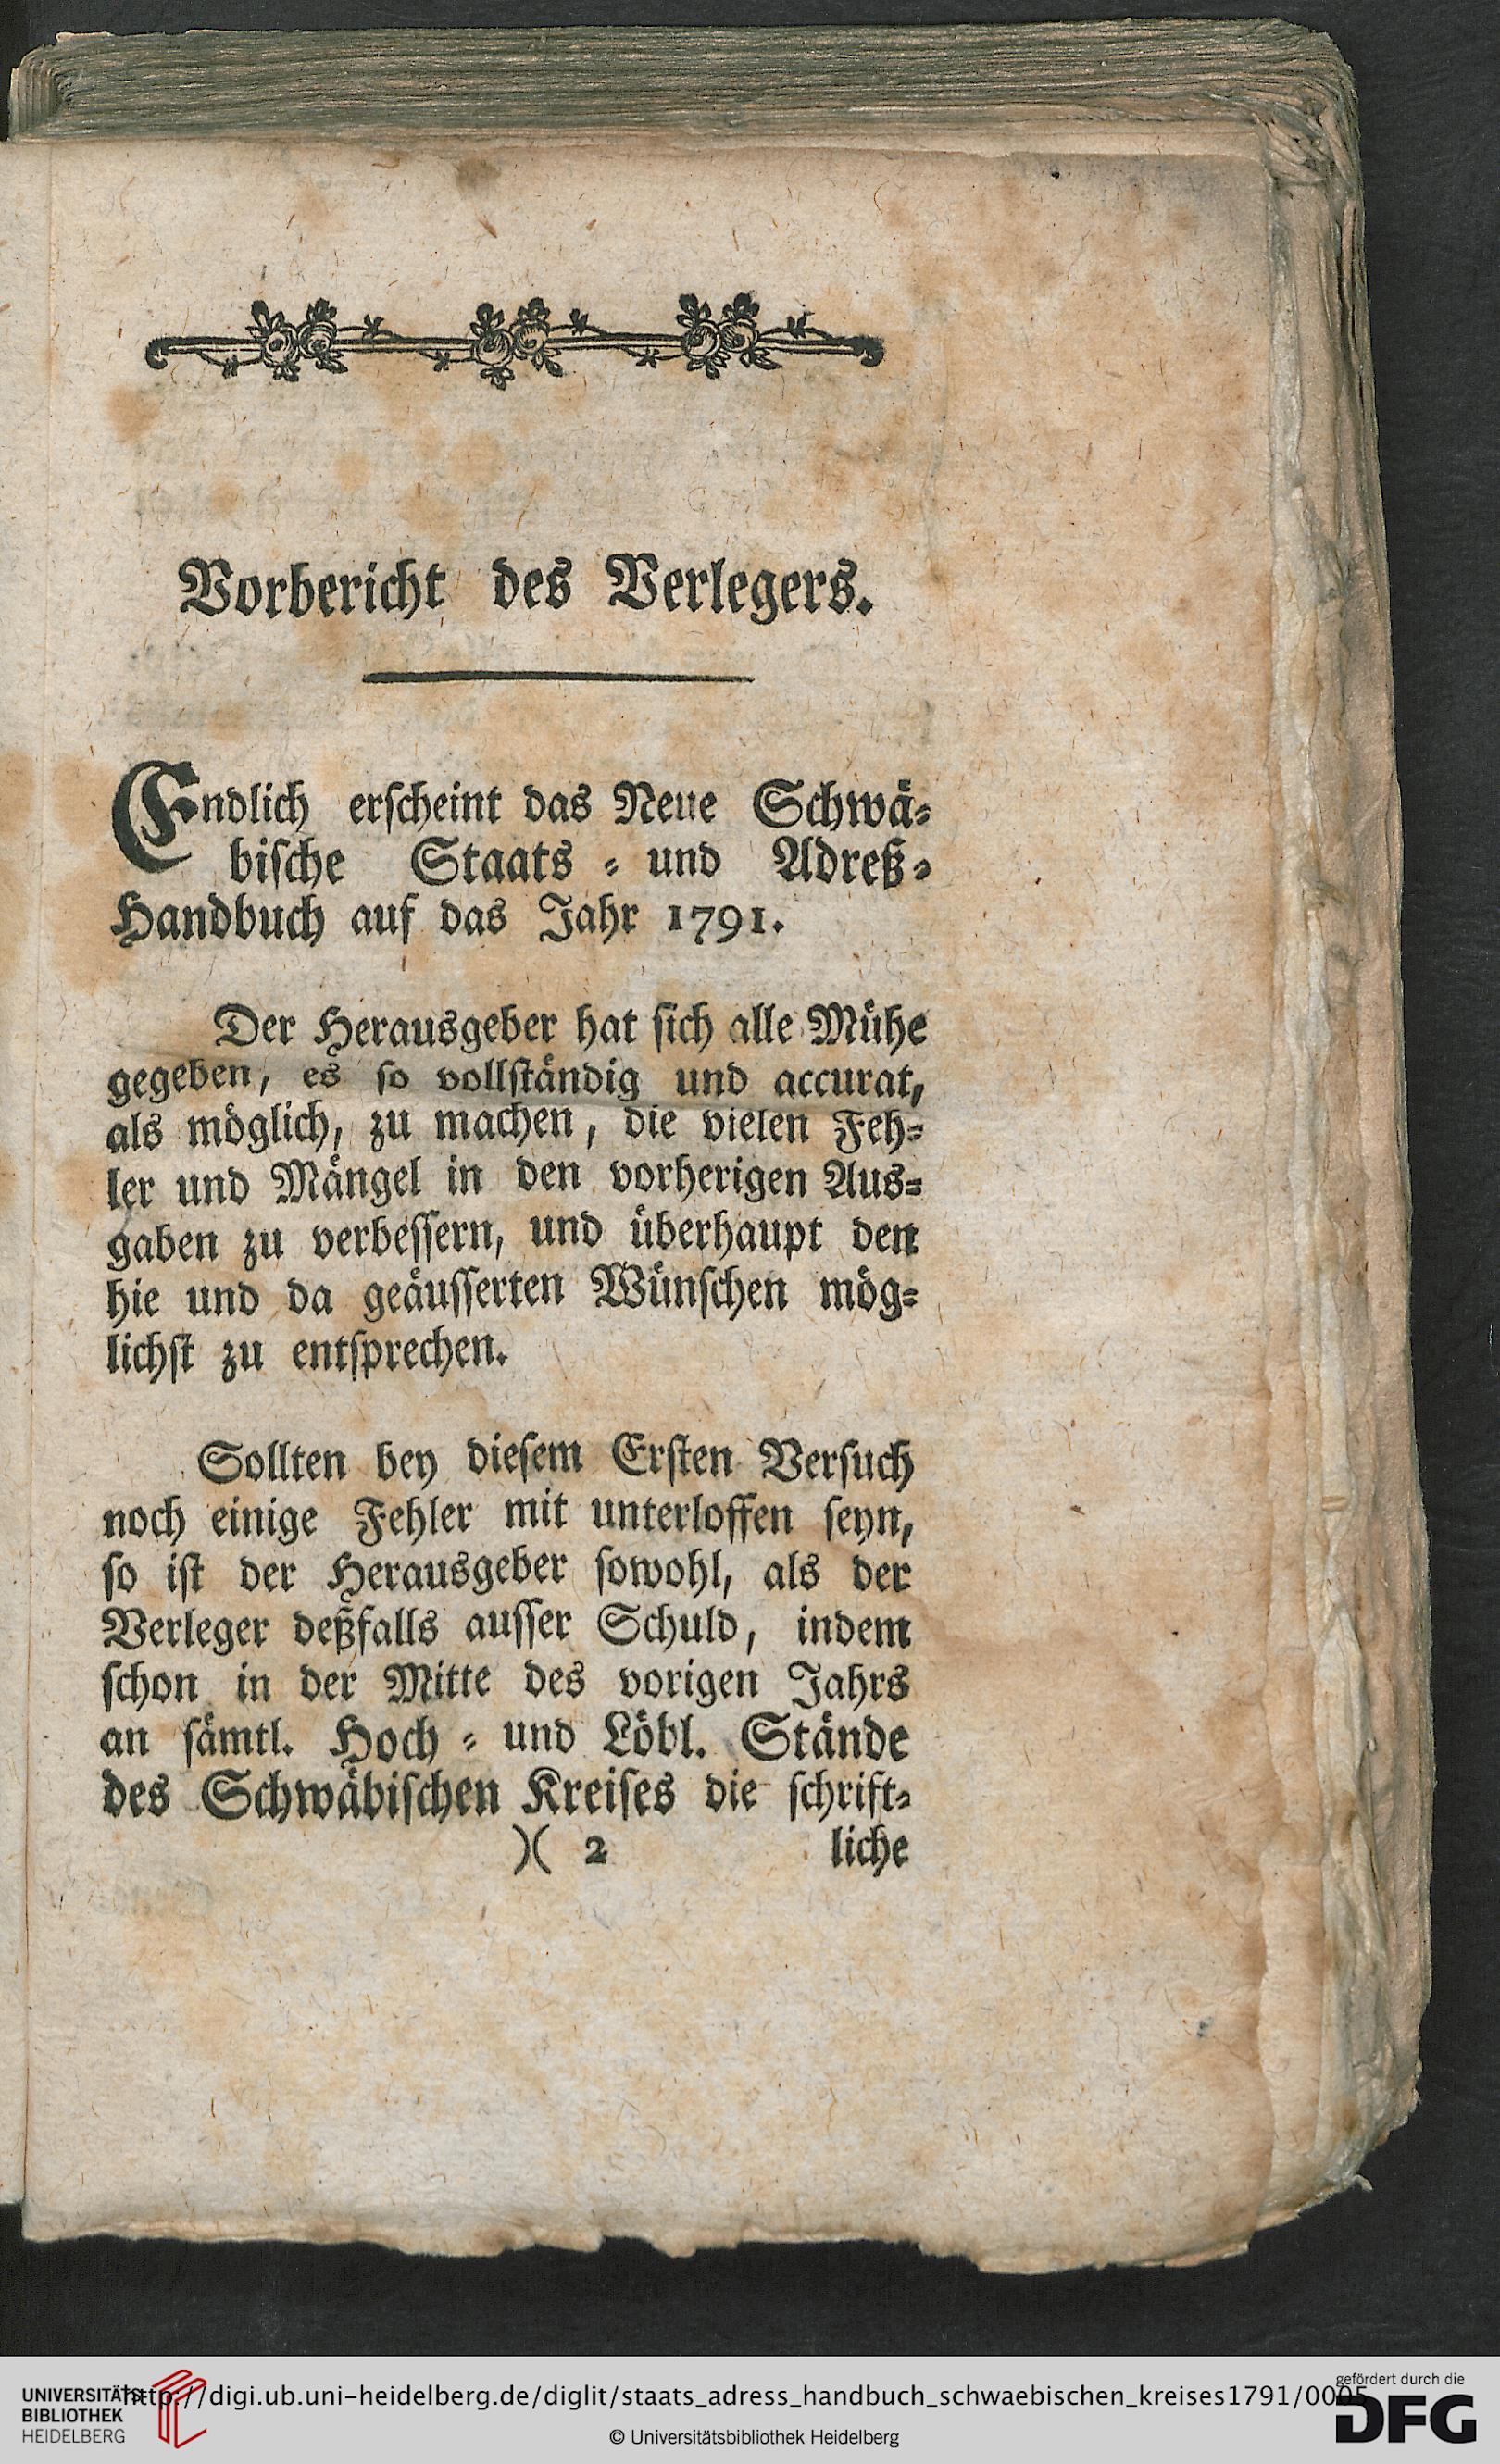 Vorbericht des Verlegers.
Endlich erscheint das Neue Schwä-
bische Staats - und Adreß-
Handbuch auf das Jahr 1791.
Der Herausgeber hat sich alle Mühe
gegeben, es so vollständig und accurat,
als möglich, zu machen, die vielen Feh-
ler und Mängel in den vorherigen Aus-
gaben zu verbessern, und überhaupt den
hie und da geäusserten Wünschen mög-
lichst zu entsprechen.
Sollten bey diesem Ersten Versuch
noch einige Fehler mit unterloffen seyn,
so ist der Herausgeber sowohl, als der
Verleger deßfalls ausser Schuld, indem
schon in der Mitte des vorigen Jahrs
an sämtl. Hoch - und Löbl. Stände
des Schwäbischen Kreises die schrift-
)( 2 liche
UNIVERSITÄTS-
BIBLIOTHEK
HEIDELBERG
http://digi.ub.uni-heidelberg.de/diglit/staats_adress_handbuch_schwaebischen_kreises1791/0005
© Universitätsbibliothek Heidelberg
gefördert durch die
DFG